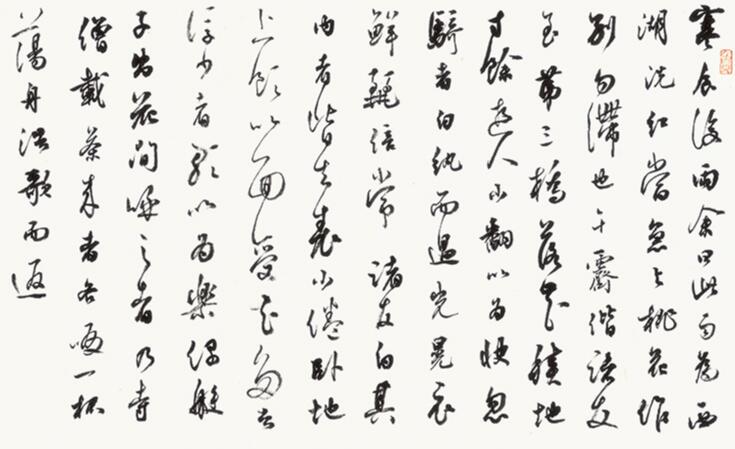 寒食後雨余曰此雨為西
湖洗紅當急與桃花作
別勿滯也午霽偕諸友
至第三橋落花積地
寸餘遊人少翻以為快忽
騎者白紈而過光晃衣
鮮麗倍常諸友白其
內者皆去表少倦卧地
上飲以面受花多者
浮少者歌以為樂偶艇
子出花間呼之者乃寺
僧載茶來者各啜一杯
蕩舟浩歌而返